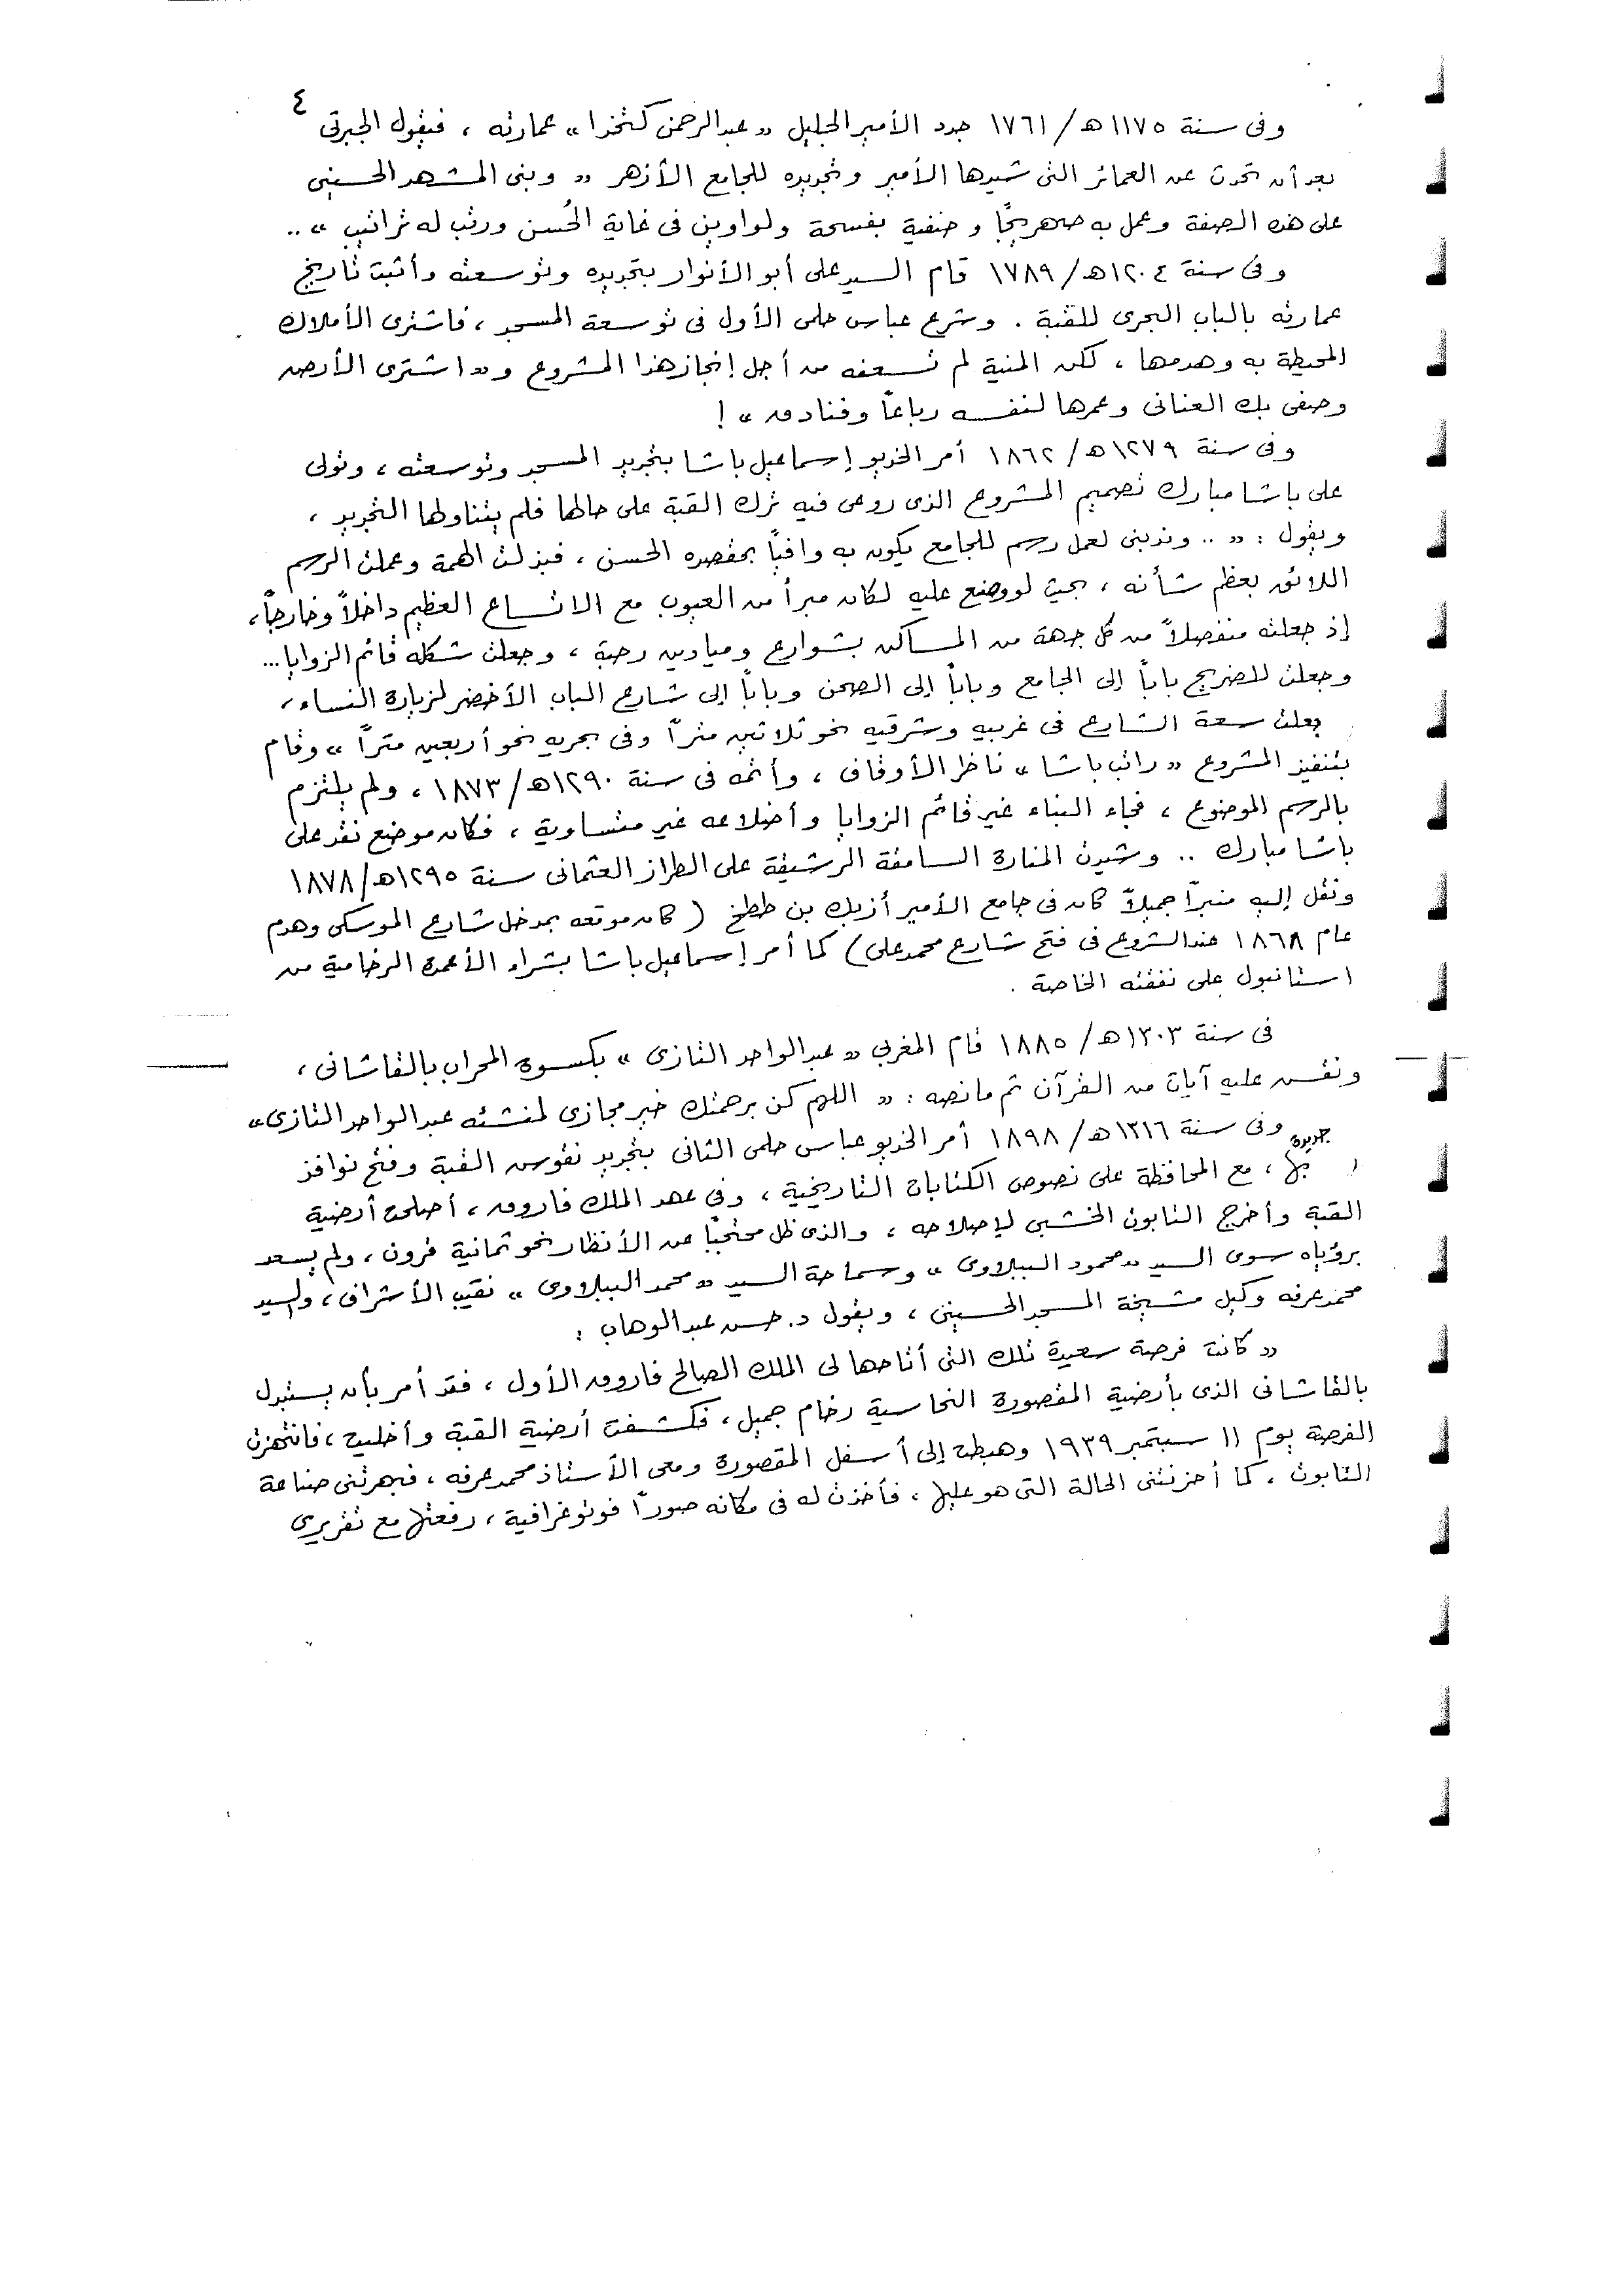 ٤
وفى سنة ١١٧٥ھ/١٧٦١ جدد الأمير الجليل « عبدالرحمن كتخدا » عمارته ، فيقول الجبرتى
بعد أن تحدث عن العمائر التى شيدها الأمير وتجديده للجامع الأزهر « وبنى المشهد الحسينى
على هذه الصفة وعمل به صهريجًا و حنفية بفسحة ولواوين فى غاية الحُسن ورتب له تراتيب » ..
وفى سنة ١٢٠٤ھ/١٧٨٩ قام السيد على أبو الأنوار بتجديده وتوسعته وأثبت تاريخ
عمارته بالباب البحرى للقبة . وشرع عباس حلمى الأول فى توسعة المسجد ، فاشترى الأملاك
المحيطة به وهدمها ، لكن المنية لم تسعفه من أجل إنجاز هذا المشروع و« اشترى الأرض
وصفى بك العنانى وعمرها لنفسه رباعًا وفنادق » !
وفى سنة ١٢٧٩ھ/١٨٦٢ أمر الخديو إسماعيل باشا بتجديد المسجد وتوسعته ، وتولى
على باشا مبارك تصميم المشروع الذى روعى فيه ترك القبة على حالها فلم يتناولها التجديد ،
ويقول : « .. وندبنى لعمل رسم للجامع يكون به وافيًا بمقصده الحسن ، فبذلت الهمة وعملت الرسم
اللائق بعظم شأنه ، بحيث لو وضع عليه لكان مبرأ من العيوب مع الاتساع العظيم داخلاً وخارجاً ،
إذ جعلته منفصلاً من كل جهة من المساكن بشوارع وميادين رحبة ، وجعلت شكله قائم الزوايا ...
وجعلت للضريح باباً إلى الجامع وباباً إلى الصحن وباباً إلى شارع الباب الأخضر لزيارة النساء ،
جعلت سعة الشارع فى غربيه وشرقيه نحو ثلاثين متراً وفى بحريه نحو أربعين متراً » وقام
بتنفيذ المشروع « راتب باشا » ناظر الأوقاف ، وأتمه فى سنة ١٢٩٠ھ/١٨٧٣ ، ولم يلتزم
بالرسم الموضوع ، فجاء البناء غير قائم الزوايا وأضلاعه غير متساوية ، فكان موضع نقد على
باشا مبارك .. وشيدت المنارة السامقة الرشيقة على الطراز العثمانى سنة ١٢٩٥ھ/١٨٧٨
ونقل إليه منبراً جميلاً كان فى جامع الأمير أزبك بن ططخ ( كان موقعه بمدخل شارع الموسكى وهدم
عام ١٨٦٨ عند الشروع فى فتح شارع محمد على ) كما أمر إسماعيل باشا بشراء الأعمدة الرخامية من
استانبول على نفقته الخاصة .
فى سنة ١٣٠٣ھ/١٨٨٥ قام المغربي « عبدالواحد التازى » بكسوة المحراب بالقاشانى ،
ونقش عليه آيات من القرآن ثم ما نصه : « اللهم كن برحمتك خير مجازى لمنشئه عبدالواحد التازى »
وفى سنة ١٣١٦ھ/١٨٩٨ أمر الخديو عباس حلمى الثانى بتجديد نقوش القبة وفتح نوافذ
جديدة بها ، مع المحافظة على نصوص الكتابات التاريخية ، وفي عهد الملك فاروق ، أصلحت أرضية
القبة وأخرج التابوت الخشبي لإصلاحه ، والذى ظل محتجبًا عن الأنظار نحو ثمانية قرون ، ولم يسعد
برؤياه سوى السيد « محمود الببلاوى » وسماحة السيد « محمد الببلاوى » نقيب الأشراف ، والسيد
محمد عرفه وكيل مشيخة المسجد الحسينى ، ويقول د. حسن عبدالوهاب :
« كانت فرصة سعيدة تلك التى أتاحها لى الملك الصالح فاروق الأول ، فقد أمر بأن يستبدل
بالقاشانى الذى بأرضية المقصورة النحاسية رخام جميل ، فكشفت أرضية القبة وأخليت ، فانتهزت
الفرصة يوم ١١ سبتمبر ١٩٣٩ وهبطت إلى أسفل المقصورة ومعى الأستاذ محمد عرفه ، فبهرتنى صناعة
التابوت ، كما أحزنتنى الحالة التى هو عليها ، فأخذت له فى مكانه صوراً فوتوغرافية ، رفعتها مع تقريرى